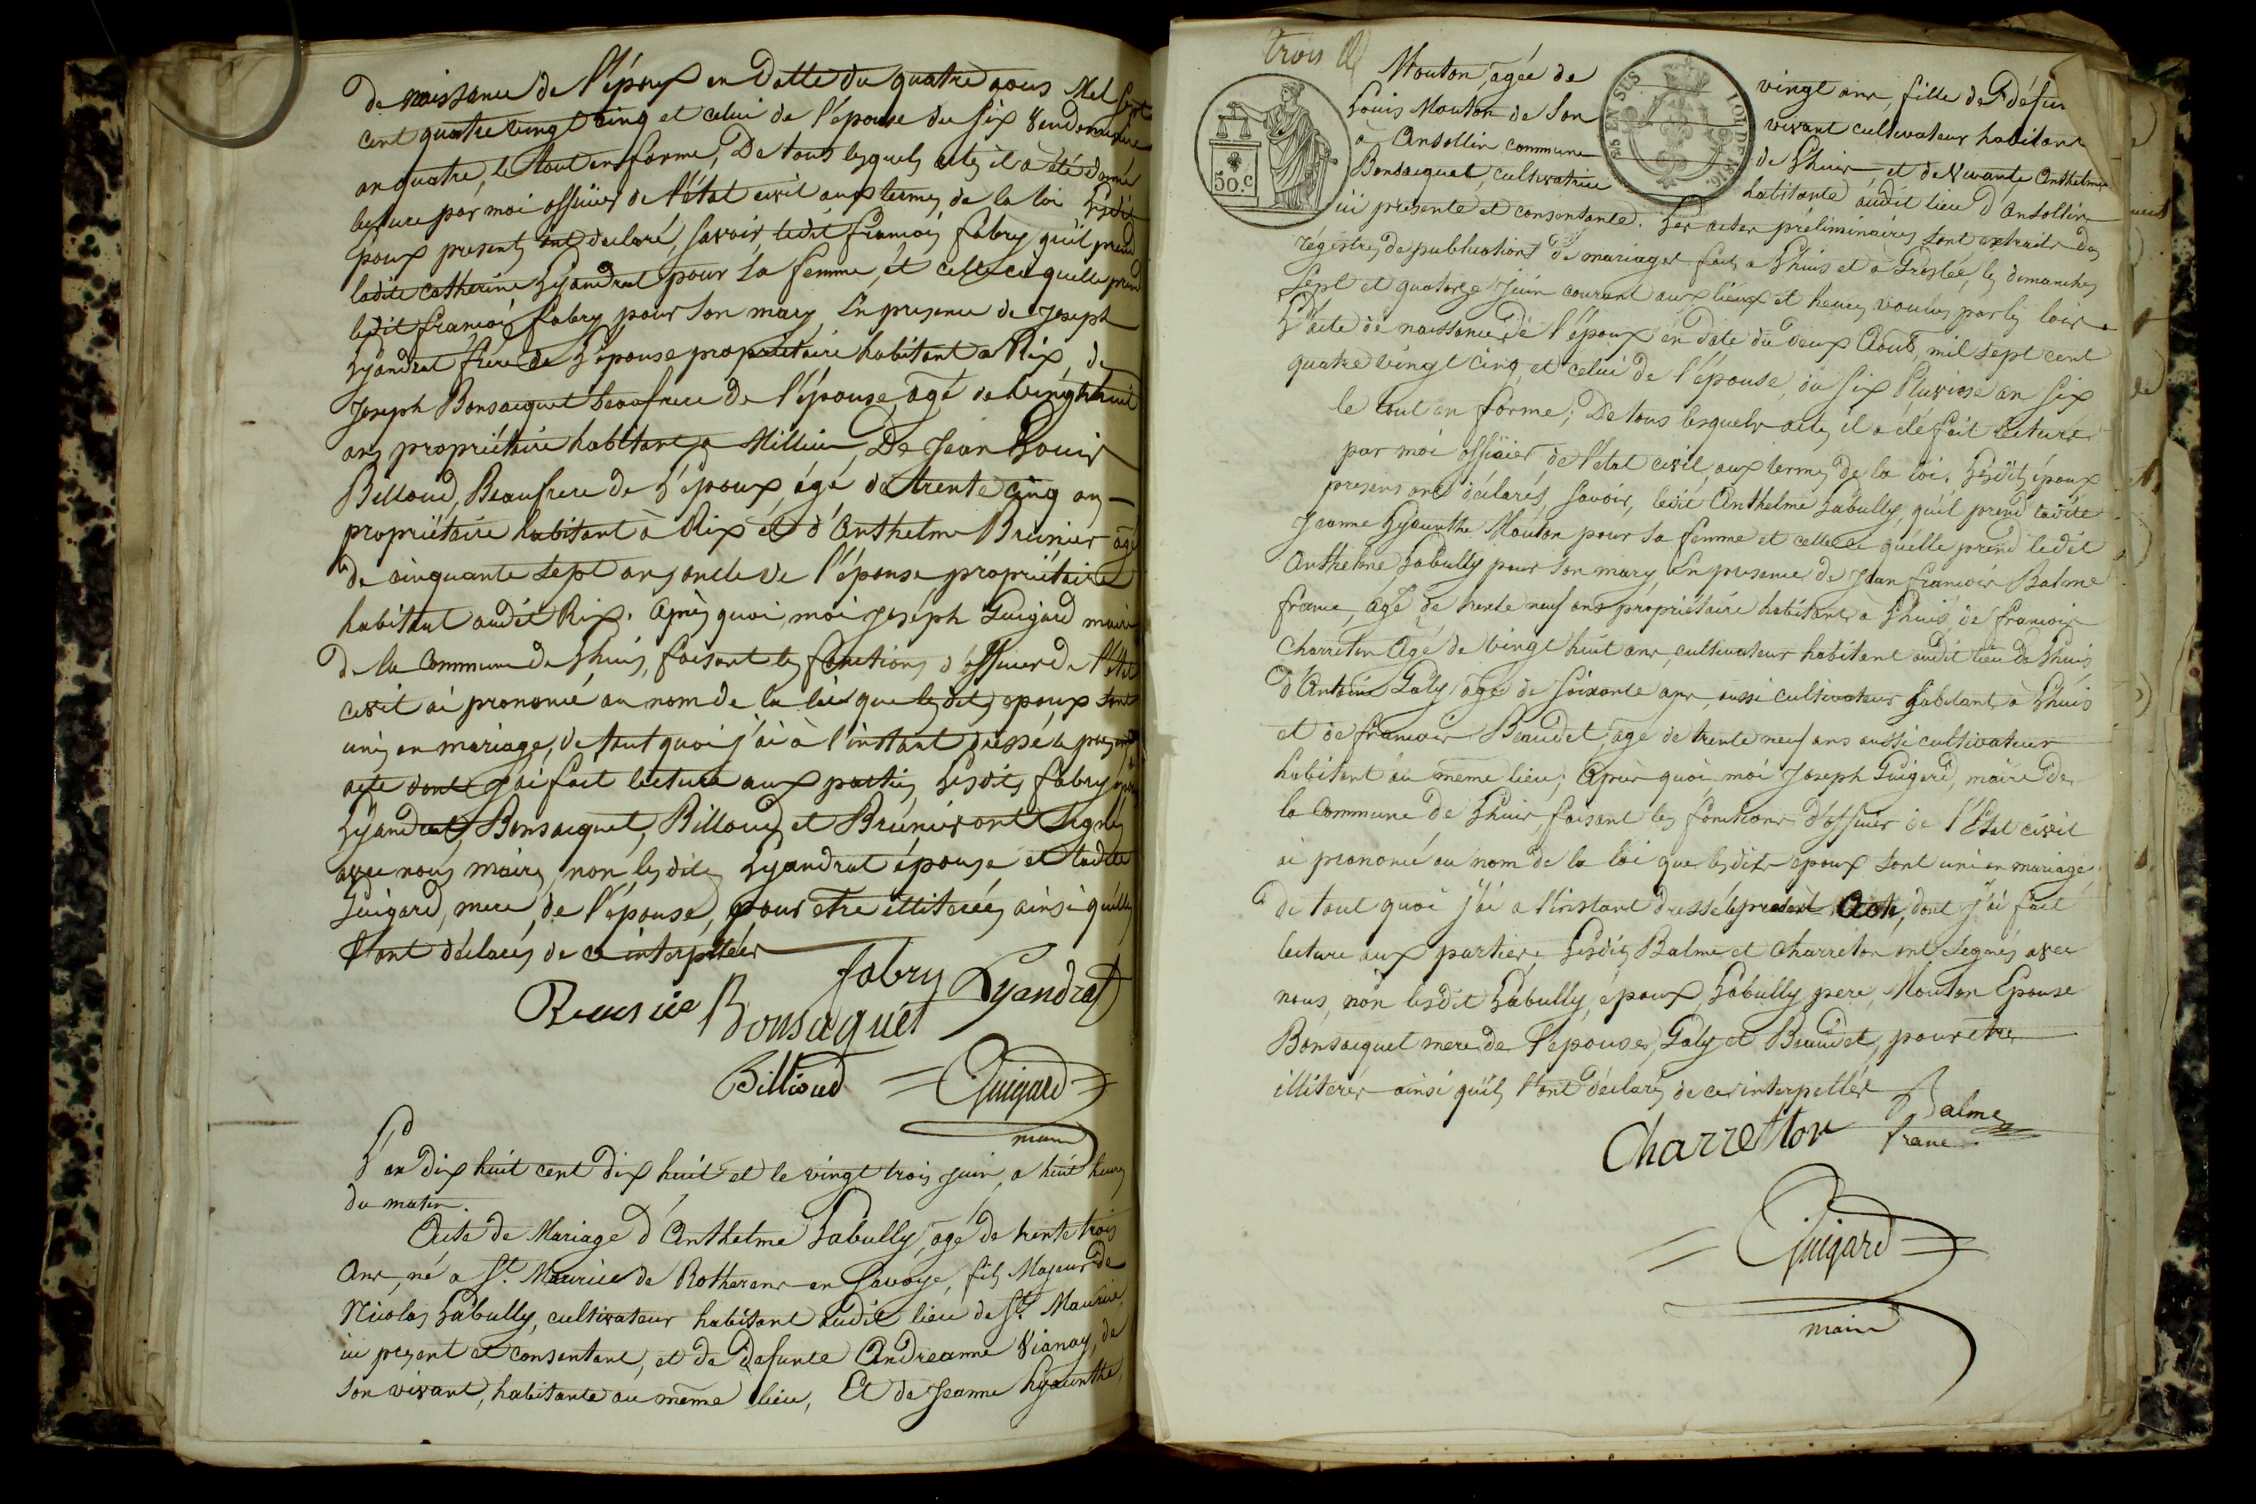 de naissance de l'époux en datte du quatre aous Mel sept
cent quatre vingt cinq et celui de l'épouse du six Vendemiaire
an quatre, le tout en forme, De tous lesquels actes il a été donné
lecture par moi officier de l'état civil aux termes de la loi Lesdits
époux presents ont declaré, savoir, ledit françois fabry qu'il prend
ladite catherine Lyandrat pour sa femme, et celle ci quelle prend
ledit françois fabry pour son mary, En presence de Joseph
Lyandrat frere de L'épouse propriétaire habitant a Rix, de
Joseph Bonsacquet beaufrere de l'épouse, agé de vingt huit
ans propriétaire habitant a Millieu, De Jean Louis
Billoud, Beaufrere de L'époux, agé de trente cinq ans
propriétaire habitant à Rix et d'Anthelme Brunier agé
de cinquante sept ans oncle de l'épouse propriétaire
habitant audit Rix. Après quoi, moi Joseph Guigard maire
de la Commune de Lhuis, faisant les fonctions d'officier de l'état
civil ai prononcé au nom de la loi que lesdits epoux sont
unis en mariage, de tout quoi j'ai à l'instant dressé le present
acte dont j'ai fait lecture aux parties, Lesdits fabry
Lyandrat, Bonsacquet, Billoud et Brunier ont Signés
avec nous maire, non lesdites Lyandrat épouse et ladite
Guigard, mere de l'épouse, pour etre illiterées ainsi qu'elles
l'ont déclarés de ce interpellées
fabry Lyandrat
Bonsaquet
Billioud Guigard
maire
L'an dix huit cent dix huit et le vingt trois Juin, a huit heures
du matin.
Acte de Mariage d'Anthelme Labully, agé de trente trois
Ans, né a St. Maurice de Rotherens en Savoye, fils Majeur de
Nicolas Labully, cultivateur habitant audit lieu de St. Maurice,
ici present et consentant, et de defunte Andréanne Vianay, de
son vivant, habitante au même lieu, Et de Jeanne hyacinthe
trois
Mouton, agée de vingt ans, fille de défun
Louis Mouton de Son vivant cultivateur habitant
à Ansollin commune de Lhuis, et de Vivante Anthelme
Bonsacquet, cultivatrice habitante audit lieu d'Ansollin
50.C
EN SUS
LOI DE 1816.
ici presente et consentante. Les actes préliminaires sont extraits des
régistres de publications de mariages faits a Lhuis et a Gréslée, les dimanches
sept et quatorze Juin courant aux lieux et heures voulus par les lois
L'acte de naissance de l'époux en date du deux Août mil sept cent
quatre vingt cinq, et celui de l'épouse, du six Pluviose an six
le tout en forme; De tous lesquels actes il a été fait lecture
par moi officier de l'etat civil aux termes de la loi. Lesdits époux
presens ont déclarés, savoir, ledit Anthelme Labully, qu'il prend ladite
Jeanne Hyacinthe Mouton pour sa femme et celle ce quelle prend ledit
Anthelme Labully pour son mary, En presence de Jean françois Balme
franc, agé de trente neuf ans propriétaire habitant à Lhuis, de françois
Charreton agé de vingt huit ans, cultivateur habitant audit lieu de Lhuis
d'Antoine Galy, agé de soixante ans, aussi cultivateur habitant à Lhuis
et de françois Beaudet, agé de trente neuf ans aussi cultivateur
habitant au même lieu; Après quoi, moi Joseph Guigard, maire de
la Commune de Lhuis, faisant les fonctions d'officier de l'Etat civil
ai prononcé au nom de la loi que lesdits epoux sont uni en mariage,
de tout quoi j'ai a l'instant dressé le présent Acte, dont j'ai fait
lecture aux parties, Lesdits Balme et Charreton ont Signés avec
nous, non lesdit Labully, epoux, Labully pere, Mouton Epouse
Bonsacquet mere de l'épouse, Galy et Beaudet, pour etre
illiterés ainsi qu'ils l'ont déclarés de ce interpellés
Charretton Balme
franc
Guigard
maire